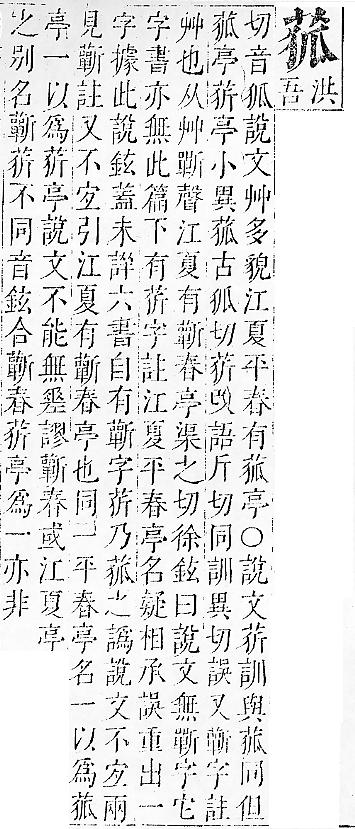 菰
洪
吾
切音狐說文艸多貌江夏平春有菰亭○說文䓄訓與菰同但
菰亭䓄亭小異菰古狐切䓄攺語斤切同訓異切誤又蘄字註
艸也从艸𣂷聲江夏有蘄春亭渠之切徐鉉曰說文無𣂷字它
字書亦無此篇下有䓄字註江夏平春亭名疑相承誤重出一
字據此說鉉蓋未詳六書自有蘄字䓄乃菰之譌說文不宐兩
見蘄註又不宐引江夏有蘄春亭也同一平春亭名一以爲菰
亭一以爲䓄亭說文不能無謬蘄春或江夏亭
之別名蘄䓄不同音鉉合蘄春䓄亭爲一亦非